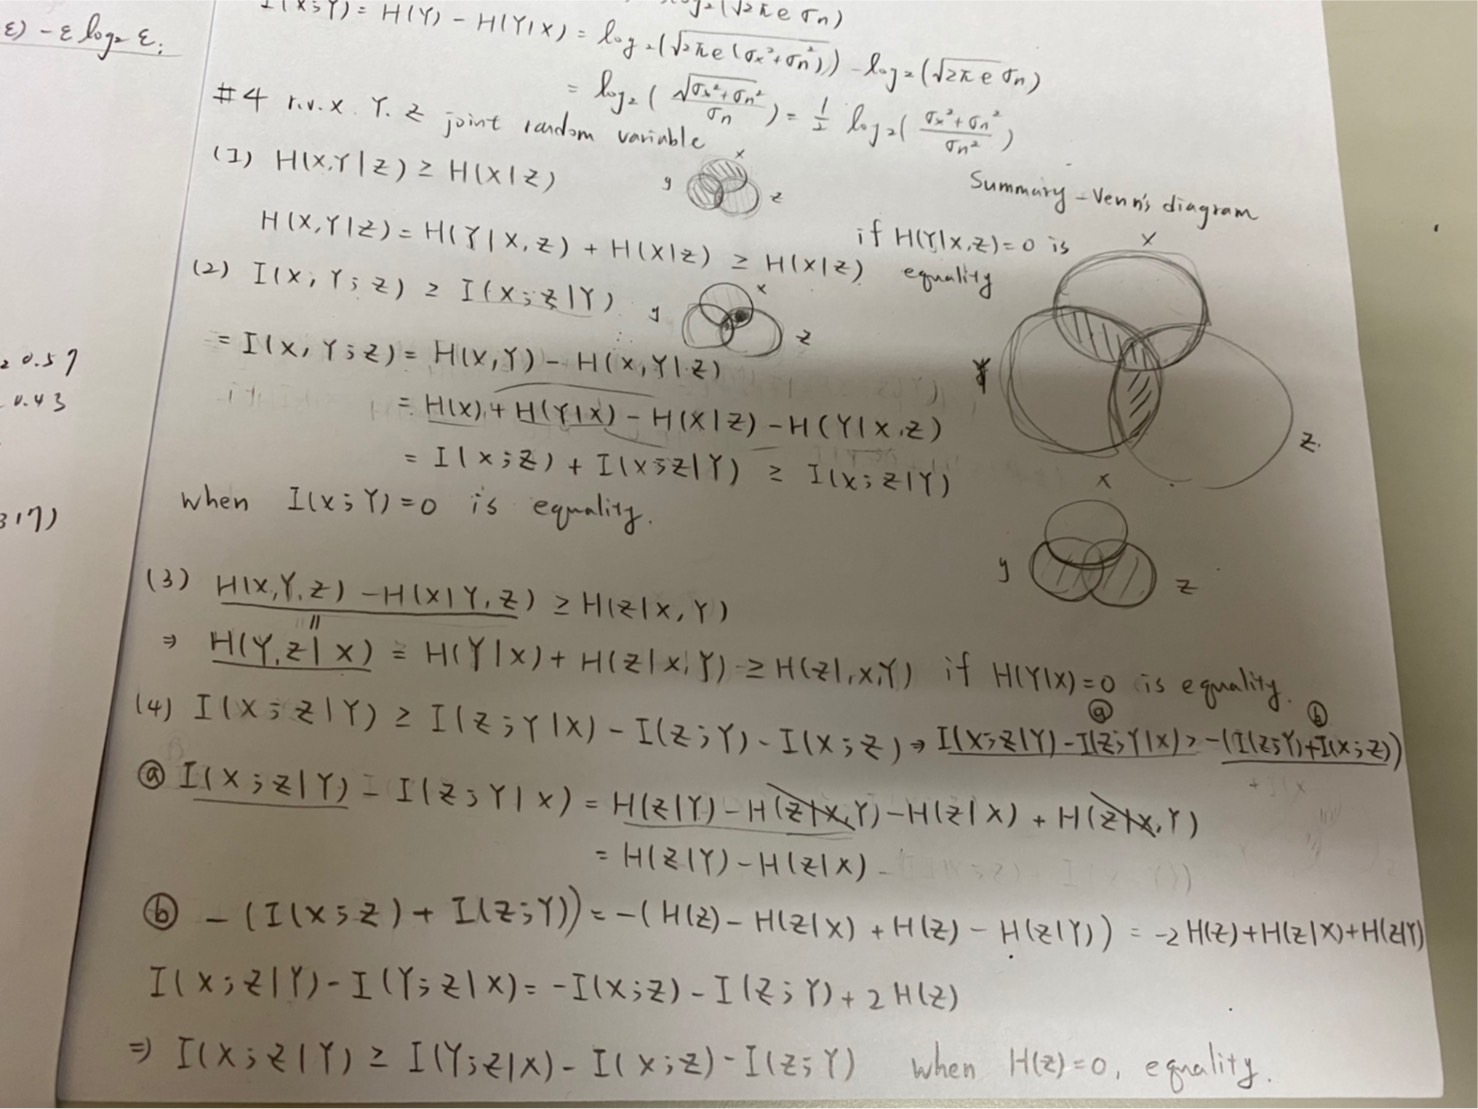 ε) - ε log₂ ε;
log₂(√2πe σn)
I(X;Y) = H(Y) - H(Y|X) = log₂(√2πe(σx²+σn²)) - log₂(√2πe σn)
= log₂(√σx²+σn² / σn) = 1/2 log₂(σx²+σn² / σn²)
#4 r.v. X. Y. Z joint random variable
(1) H(X,Y|Z) ≥ H(X|Z)
x
y
z
Summary - Venn's diagram
H(X,Y|Z) = H(Y|X,Z) + H(X|Z) ≥ H(X|Z) if H(Y|X,Z)=0 is equality
(2) I(X,Y;Z) ≥ I(X;Z|Y)
x
y
z
= I(X,Y;Z) = H(X,Y) - H(X,Y|Z)
= H(X) + H(Y|X) - H(X|Z) - H(Y|X,Z)
= I(X;Z) + I(X;Z|Y) ≥ I(X;Z|Y)
when I(X;Y)=0 is equality.
x
Y
z.
0.57
0.43
317)
x
y
z
(3) H(X,Y,Z) - H(X|Y,Z) ≥ H(Z|X,Y)
"
⇒ H(Y,Z|X) = H(Y|X) + H(Z|X,Y) ≥ H(Z|,X,Y) if H(Y|X)=0 is equality.
(4) I(X;Z|Y) ≥ I(Z;Y|X) - I(Z;Y) - I(X;Z) ⇒ I(X;Z|Y) - I(Z;Y|X) > -(I(Z;Y)+I(X;Z))
ⓐ ⓑ
ⓐ I(X;Z|Y) - I(Z;Y|X) = H(Z|Y) - H(Z|X,Y) - H(Z|X) + H(Z|X,Y)
= H(Z|Y) - H(Z|X)
ⓑ - (I(X;Z) + I(Z;Y)) = -(H(Z) - H(Z|X) + H(Z) - H(Z|Y)) = -2H(Z)+H(Z|X)+H(Z|Y)
I(X;Z|Y) - I(Y;Z|X) = -I(X;Z) - I(Z;Y) + 2H(Z)
⇒ I(X;Z|Y) ≥ I(Y;Z|X) - I(X;Z) - I(Z;Y) when H(Z)=0, equality.